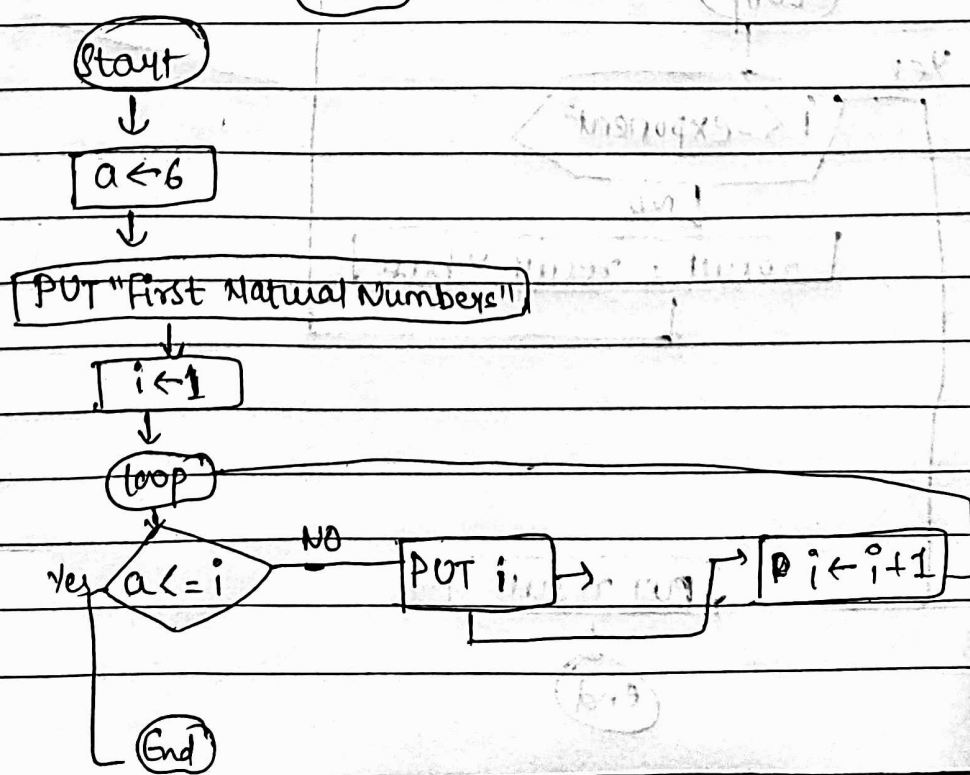 Start
a ← 6
PUT "First Natural Numbers"
i ← 1
loop
a <= i
Yes
NO
PUT i
i ← i + 1
End